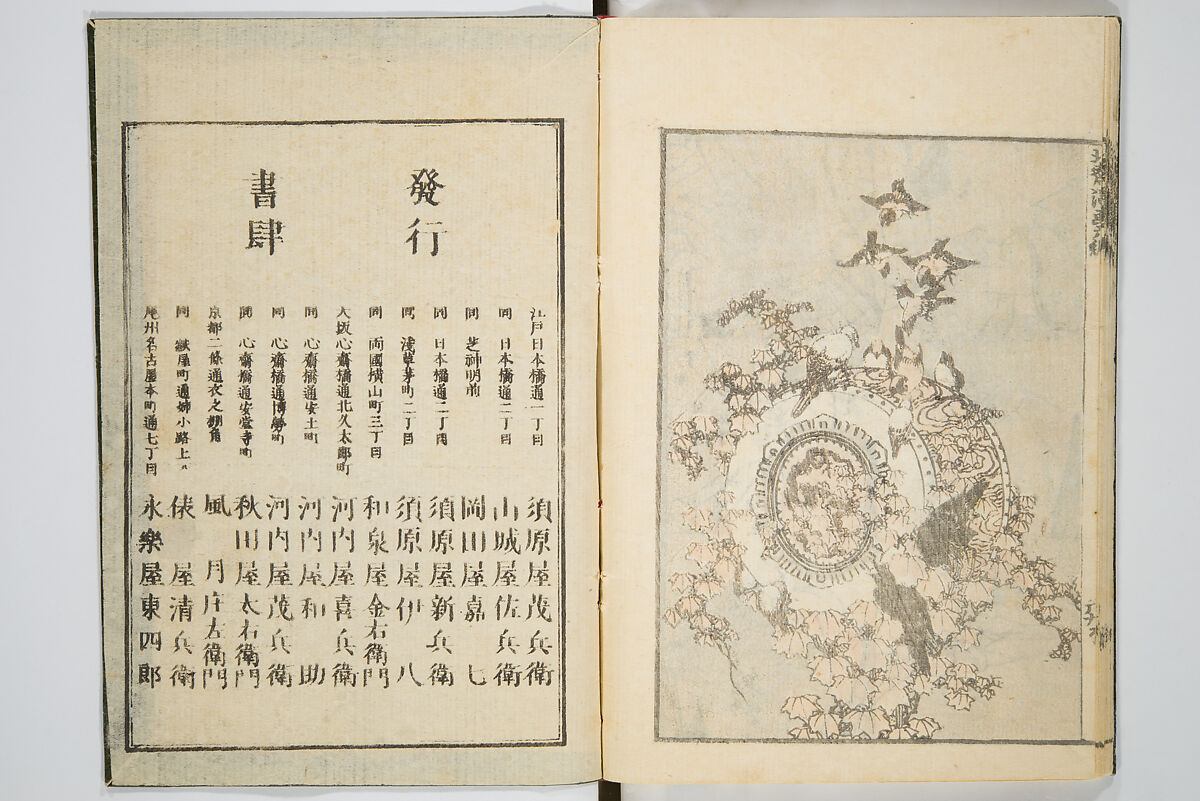 發行
書肆
江戸日本橋通一丁目 須原屋茂兵衛
同 日本橋通二丁目 山城屋佐兵衛
同 芝神明前 岡田屋嘉七
同 日本橋通二丁目 須原屋新兵衛
同 淺草茅町二丁目 須原屋伊八
同 両國横山町三丁目 和泉屋金右衛門
大坂心齋橋通北久太郎町 河内屋喜兵衛
同 心齋橋通安土町 河内屋和助
同 心齋橋通博勞町 河内屋茂兵衛
同 心齋橋通安堂寺町 秋田屋太右衛門
京都二條通衣之棚角 風月庄左衛門
同 通姉小路上ル 俵屋清兵衛
尾州名古屋本町通七丁目 永樂屋東四郎